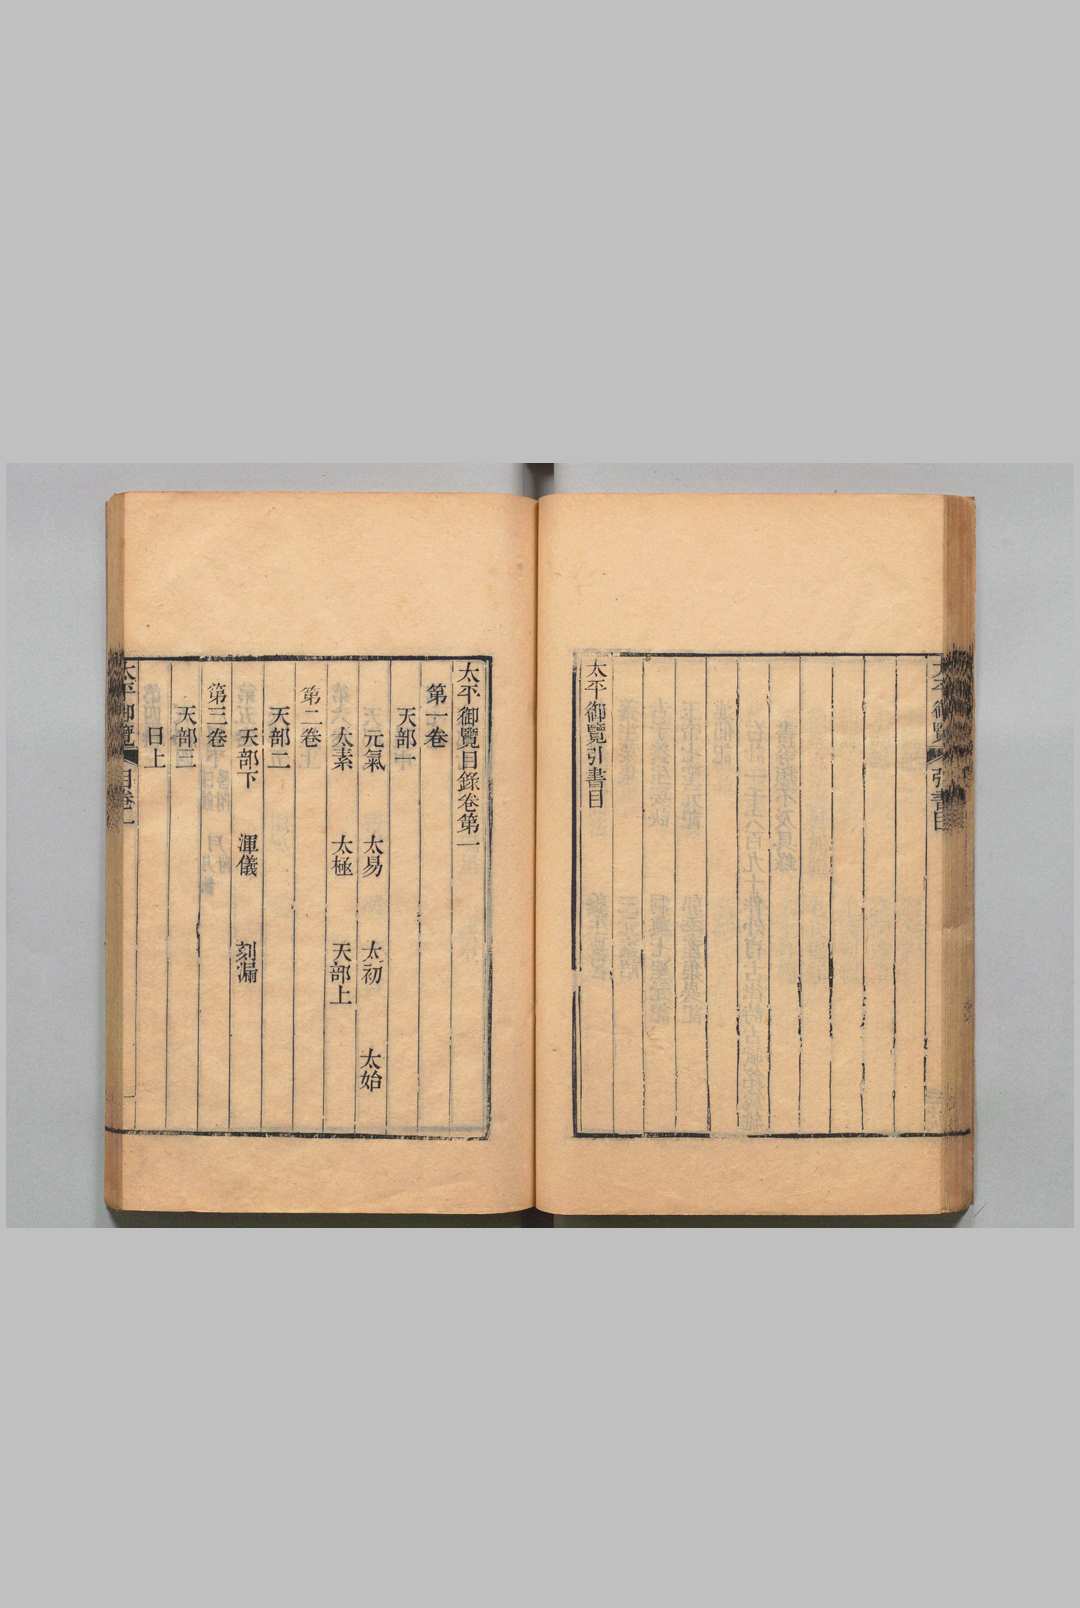 太平御覽 引書目
太平御覽引書目
太平御覽目錄卷第一
第一卷
天部一
元氣 太易 太初 太始
太素 太極 天部上
第二卷
天部二
天部下 渾儀 刻漏
第三卷
天部三
日上
太平御覽 目卷一